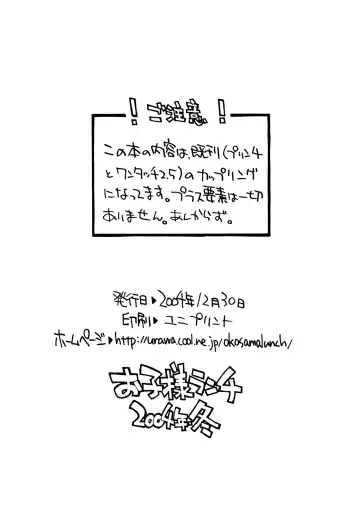 ！ご注意！
この本の内容は、既刊(プリンチ
とワンタッチ2.5)のカップリング
になってます。プラス要素は一切
ありません。あしからず。
発行日▶2004年12月30日
印刷▶ユニプリント
ホームページ▶http://urawa.cool.ne.jp/okosamalunch/
お子様ランチ
2004年・冬